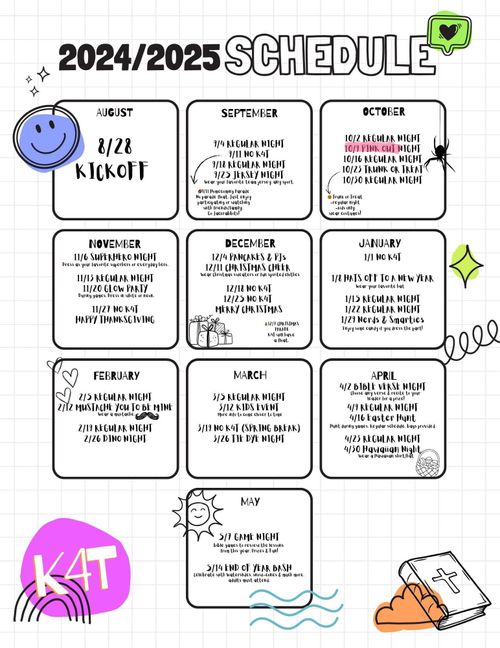 2024/2025 SCHEDULE
AUGUST
8/28
KICKOFF
SEPTEMBER
9/4 REGULAR NIGHT
9/11 NO K4T
9/18 REGULAR NIGHT
9/25 JERSEY NIGHT
Wear your favorite team jersey, any sport.
9/11 Homecoming Parade
No parade float. Just enjoy
participating or watching
with friends/family
OCTOBER
10/2 REGULAR NIGHT
10/9 PINK OUT NIGHT
10/16 REGULAR NIGHT
10/23 TRUNK OR TREAT
10/30 REGULAR NIGHT
Trunk or Treat
-regular night
-kids only
wear costumes!
NOVEMBER
11/6 SUPERHERO NIGHT
Dress as your favorite superhero or everyday hero.
11/13 REGULAR NIGHT
11/20 GLOW PARTY
During games. Dress in white or neon.
11/27 NO K4T
HAPPY THANKSGIVING
DECEMBER
12/4 PANCAKES & PJs
12/11 CHRISTMAS CHEER
Wear Christmas sweaters or fun spirited clothes
12/18 NO K4T
12/25 NO K4T
MERRY CHRISTMAS
CHRISTMAS
PARADE
K4T will have
a float.
JANUARY
1/1 NO K4T
1/8 HATS OFF TO A NEW YEAR
Wear your favorite hat.
1/15 REGULAR NIGHT
1/22 REGULAR NIGHT
1/29 Nerds & Smarties
Enjoy some candy if you dress the part!
FEBRUARY
2/5 REGULAR NIGHT
2/12 MUSTACHE YOU TO BE MINE
Wear a mustache
2/19 REGULAR NIGHT
2/26 DINO NIGHT
MARCH
3/5 REGULAR NIGHT
3/12 KIDS EVENT
More info to come closer to time
3/19 NO K4T (SPRING BREAK)
3/26 TIE DYE NIGHT
APRIL
4/2 BIBLE VERSE NIGHT
Choose any verse & recite to your
leader for a prize!
4/9 REGULAR NIGHT
4/16 Easter Hunt
Hunt during games. Regular schedule. Bags provided.
4/23 REGULAR NIGHT
4/30 Hawaiian Night
Wear a Hawaiian shirt/hat.
MAY
5/7 GAME NIGHT
Bible games to review the lessons
from this year. Prizes & Fun!
5/14 END OF YEAR BASH
Celebrate with waterslides, snow-cones & much more.
adults must attend
K4T